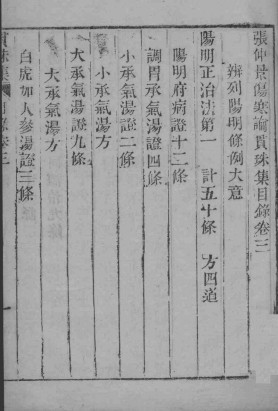 張仲景傷寒論貫珠集目錄卷三
辨列陽明條例大意
陽明正治法第一　計五十條　方四道
陽明府病證十二條
調胃承氣湯證四條
小承氣湯證二條
小承氣湯方
大承氣湯證九條
大承氣湯方
白虎加人參湯證三條